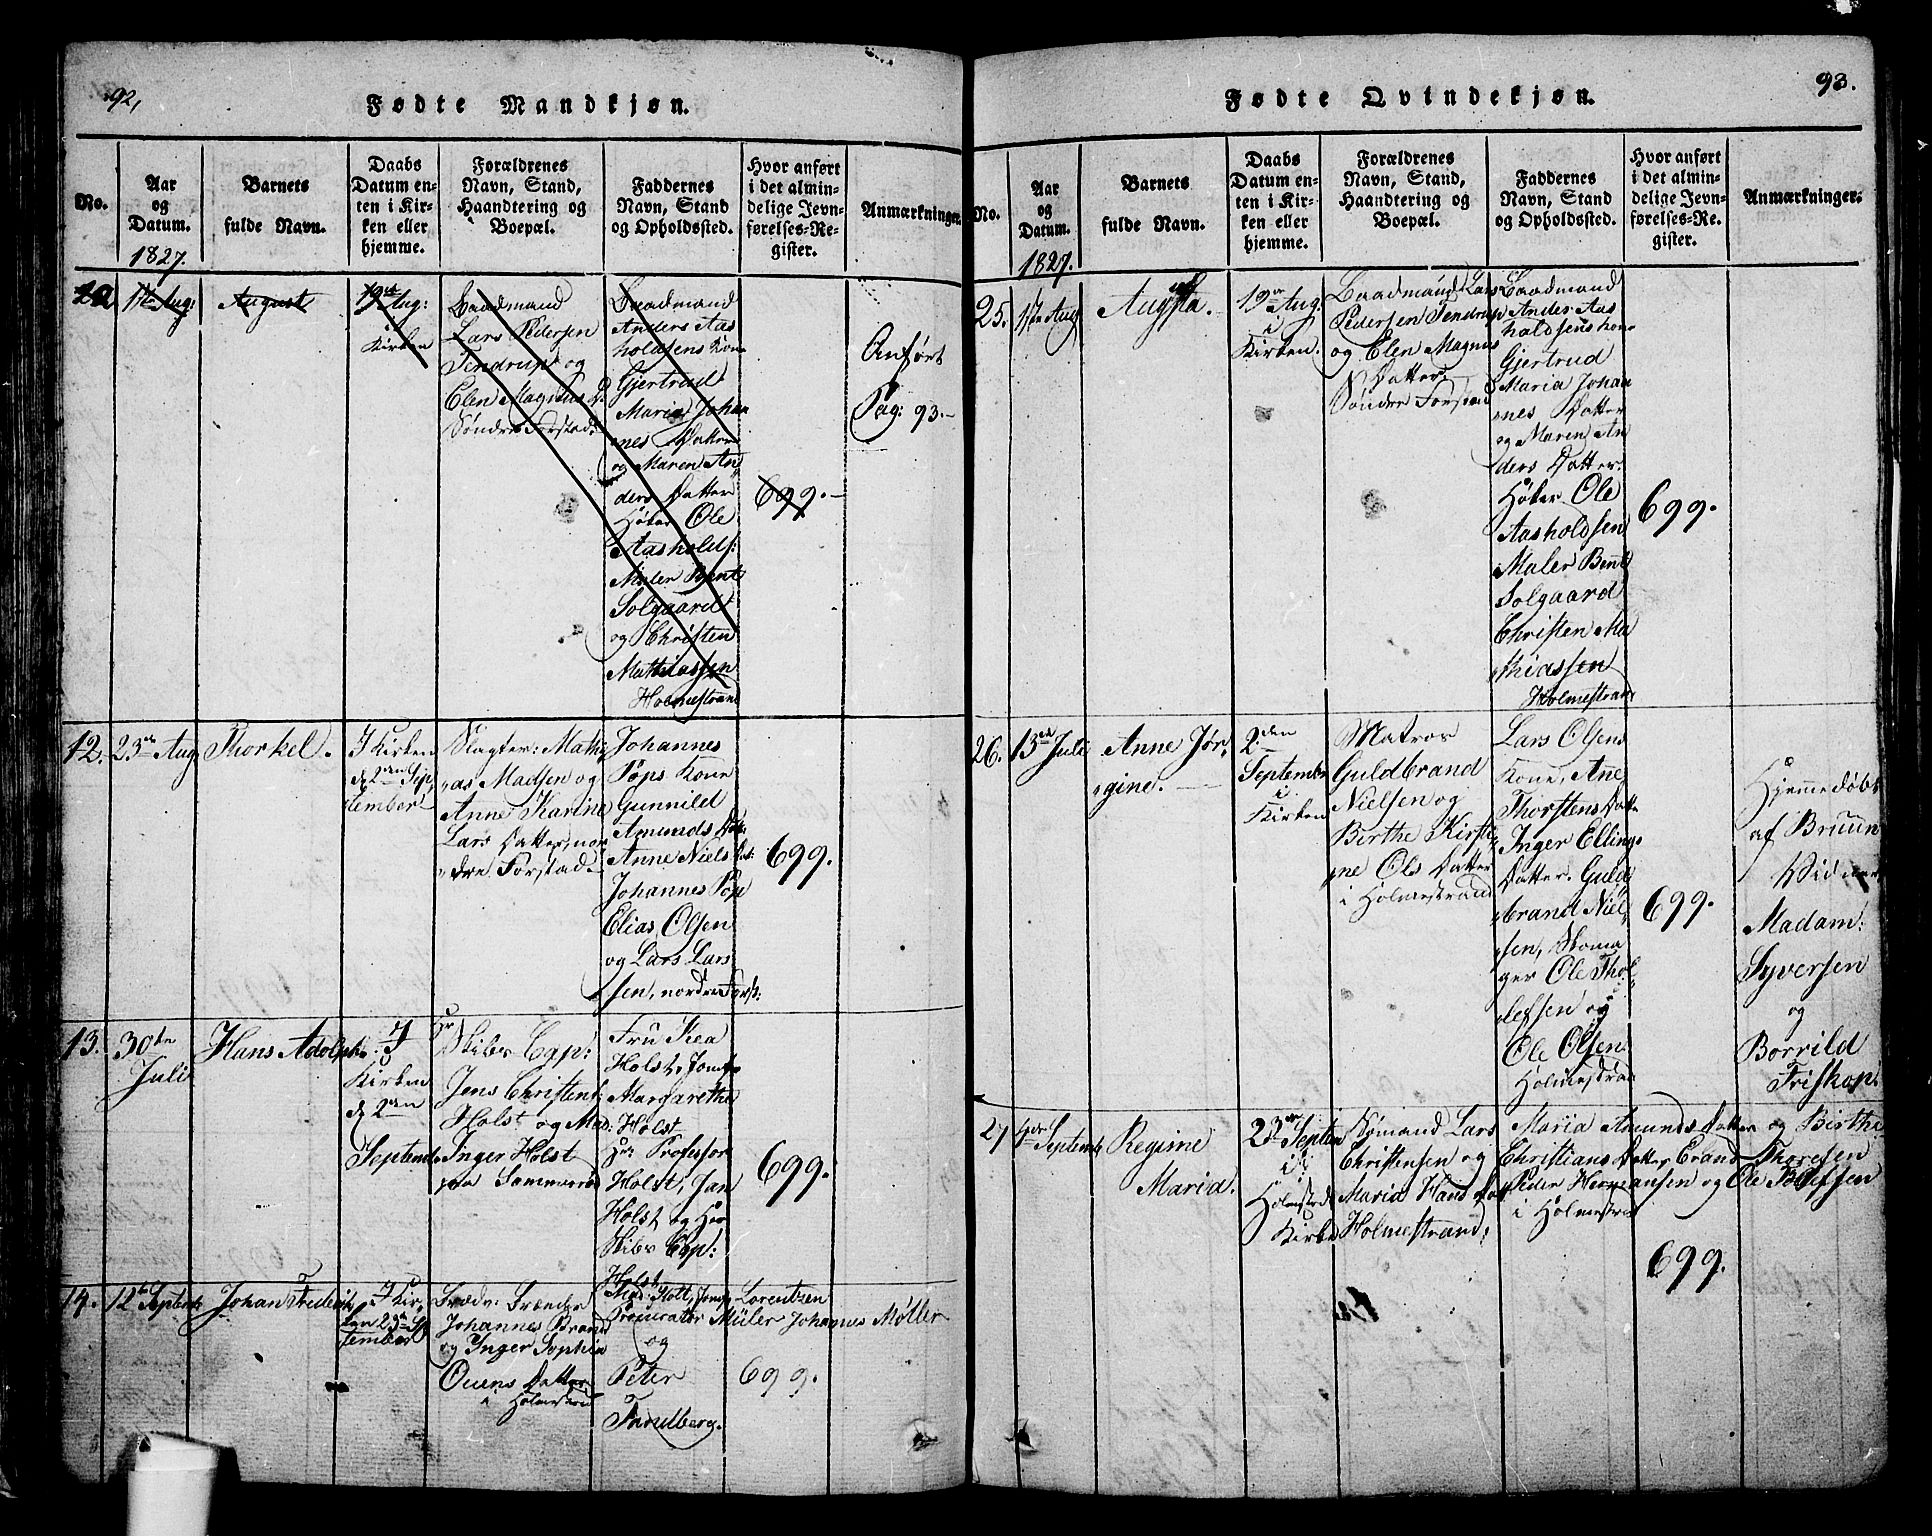 92,
Fødte Mandkjøn.
No.
Aar
og
Datum.
1827.
Barnets
fulde Navn.
Daabs
Datum en-
ten i Kir-
ken eller
hjemme.
Forældrenes
Navn, Stand,
Haandtering og
Boepæl.
Faddernes
Navn, Stand
og Opholdssted.
Hvor anført
i det almin-
delige Jevn-
førelses-Re-
gister.
Anmærkninger.
17de Aug:
August
19de Aug:
i
Kirken
Baadmand
Lars Pedersen
Tendrup og
Elen Magnus D.
Søndre Forstad.
Baadmand
Anders Aas
holdsens Kone
Gjertrud
Maria Johan
nes Datter
og Maren An
ders Datter
Høker Ole
Aasholds:
Maler Bent
Solgaard
og Christen
Mathiassen
Holmestrand
699.
Anført
Pag: 93.
12.
23de Aug.
Thorkel.
I Kirken
d 2den Sep
tember
Slagter: Mathi
as Madsen og
Anne Karine
Lars Datter, nor
dre Forstad
Johannes
Pops Kone
Gunnild
Amunds Dat:
Anne Niels Dat:
Johannes Pop
Elias Olsen
og Lars Lars
sen, nordre Forst:
699.
13.
30te
Juli
Hans Adolph.
I
Kirken
d 2den
Septemb
Hr
Skibs Cap:
Jens Christens
Holst og Mad:
Inger Holst
paa Sommerød
Fru Kea
Holst, Jomfr
Margarethe
Holst
Hr Professor
Holst, Jan
Holst og Her
Skibs Cap:
Holst
699.
14.
12te Septemb
Johan Frederik
I Kir,
ken 23de Se
tember
Johannes Brand
og Inger Sophia
Ouens Datter
i Holmestrand
Lorentzen
Procurator Müler Johannes Møller
og
Peter
699.
93.
Fødte Qvindekjøn.
No.
Aar
og
Datum.
1827.
Barnets
fulde Navn.
Daabs
Datum en-
ten i Kir-
ken eller
hjemme.
Forældrenes
Navn, Stand,
Haandtering og
Boepæl.
Faddernes
Navn, Stand
og Opholdssted.
Hvor anført
i det almin-
delige Jevn-
førelses-Re-
gister.
Anmærkninger.
25.
17de Aug
Augusta.
19de Aug:
i
Kirken.
Baadmand Lars
Pedersen Tendrup
og Elen Magnus
Datter
Søndre Forstad
Baadmand
Anders Aas
holdsens kone
Gjertrud
Maria Johan
nes Datter
og Maren An
ders Datter.
Høker Ole
Aasholdsen
Maler Bent
Solgaard
Christen Ma
thiassen
Holmestrand
699.
26.
13de Juli
Anne Jør
gine.
2den
September
i
Kirken
Matros
Guldbrand
Nielsen og
Birthe Kirsti
ne Ols Datter
i Holmestrand
Lars Olsens
Kone, Ane
Thorstens Datter
Inger Ellings
Datter. Guld
brand Niel
sen, Skoma
ger Ole Thol
lefsen og
Ole Olsen
Holmestrand
699.
Hjemmedøbt
af Bruun
Vidner
Madam:
Syversen
og
Borrild
Friskop
27
4de Septemb
Regine
Maria.
23de Septem
i
Holmestrds
Kirke
Rømand Lars
Christensen og
Maria Hans Dat
Holmestrand.
Maria Amunds Datter og Birthe
Christians Datter Erand Thoresen
Peder Hermansen og Ole Olefsen
i Holmestrd
699.